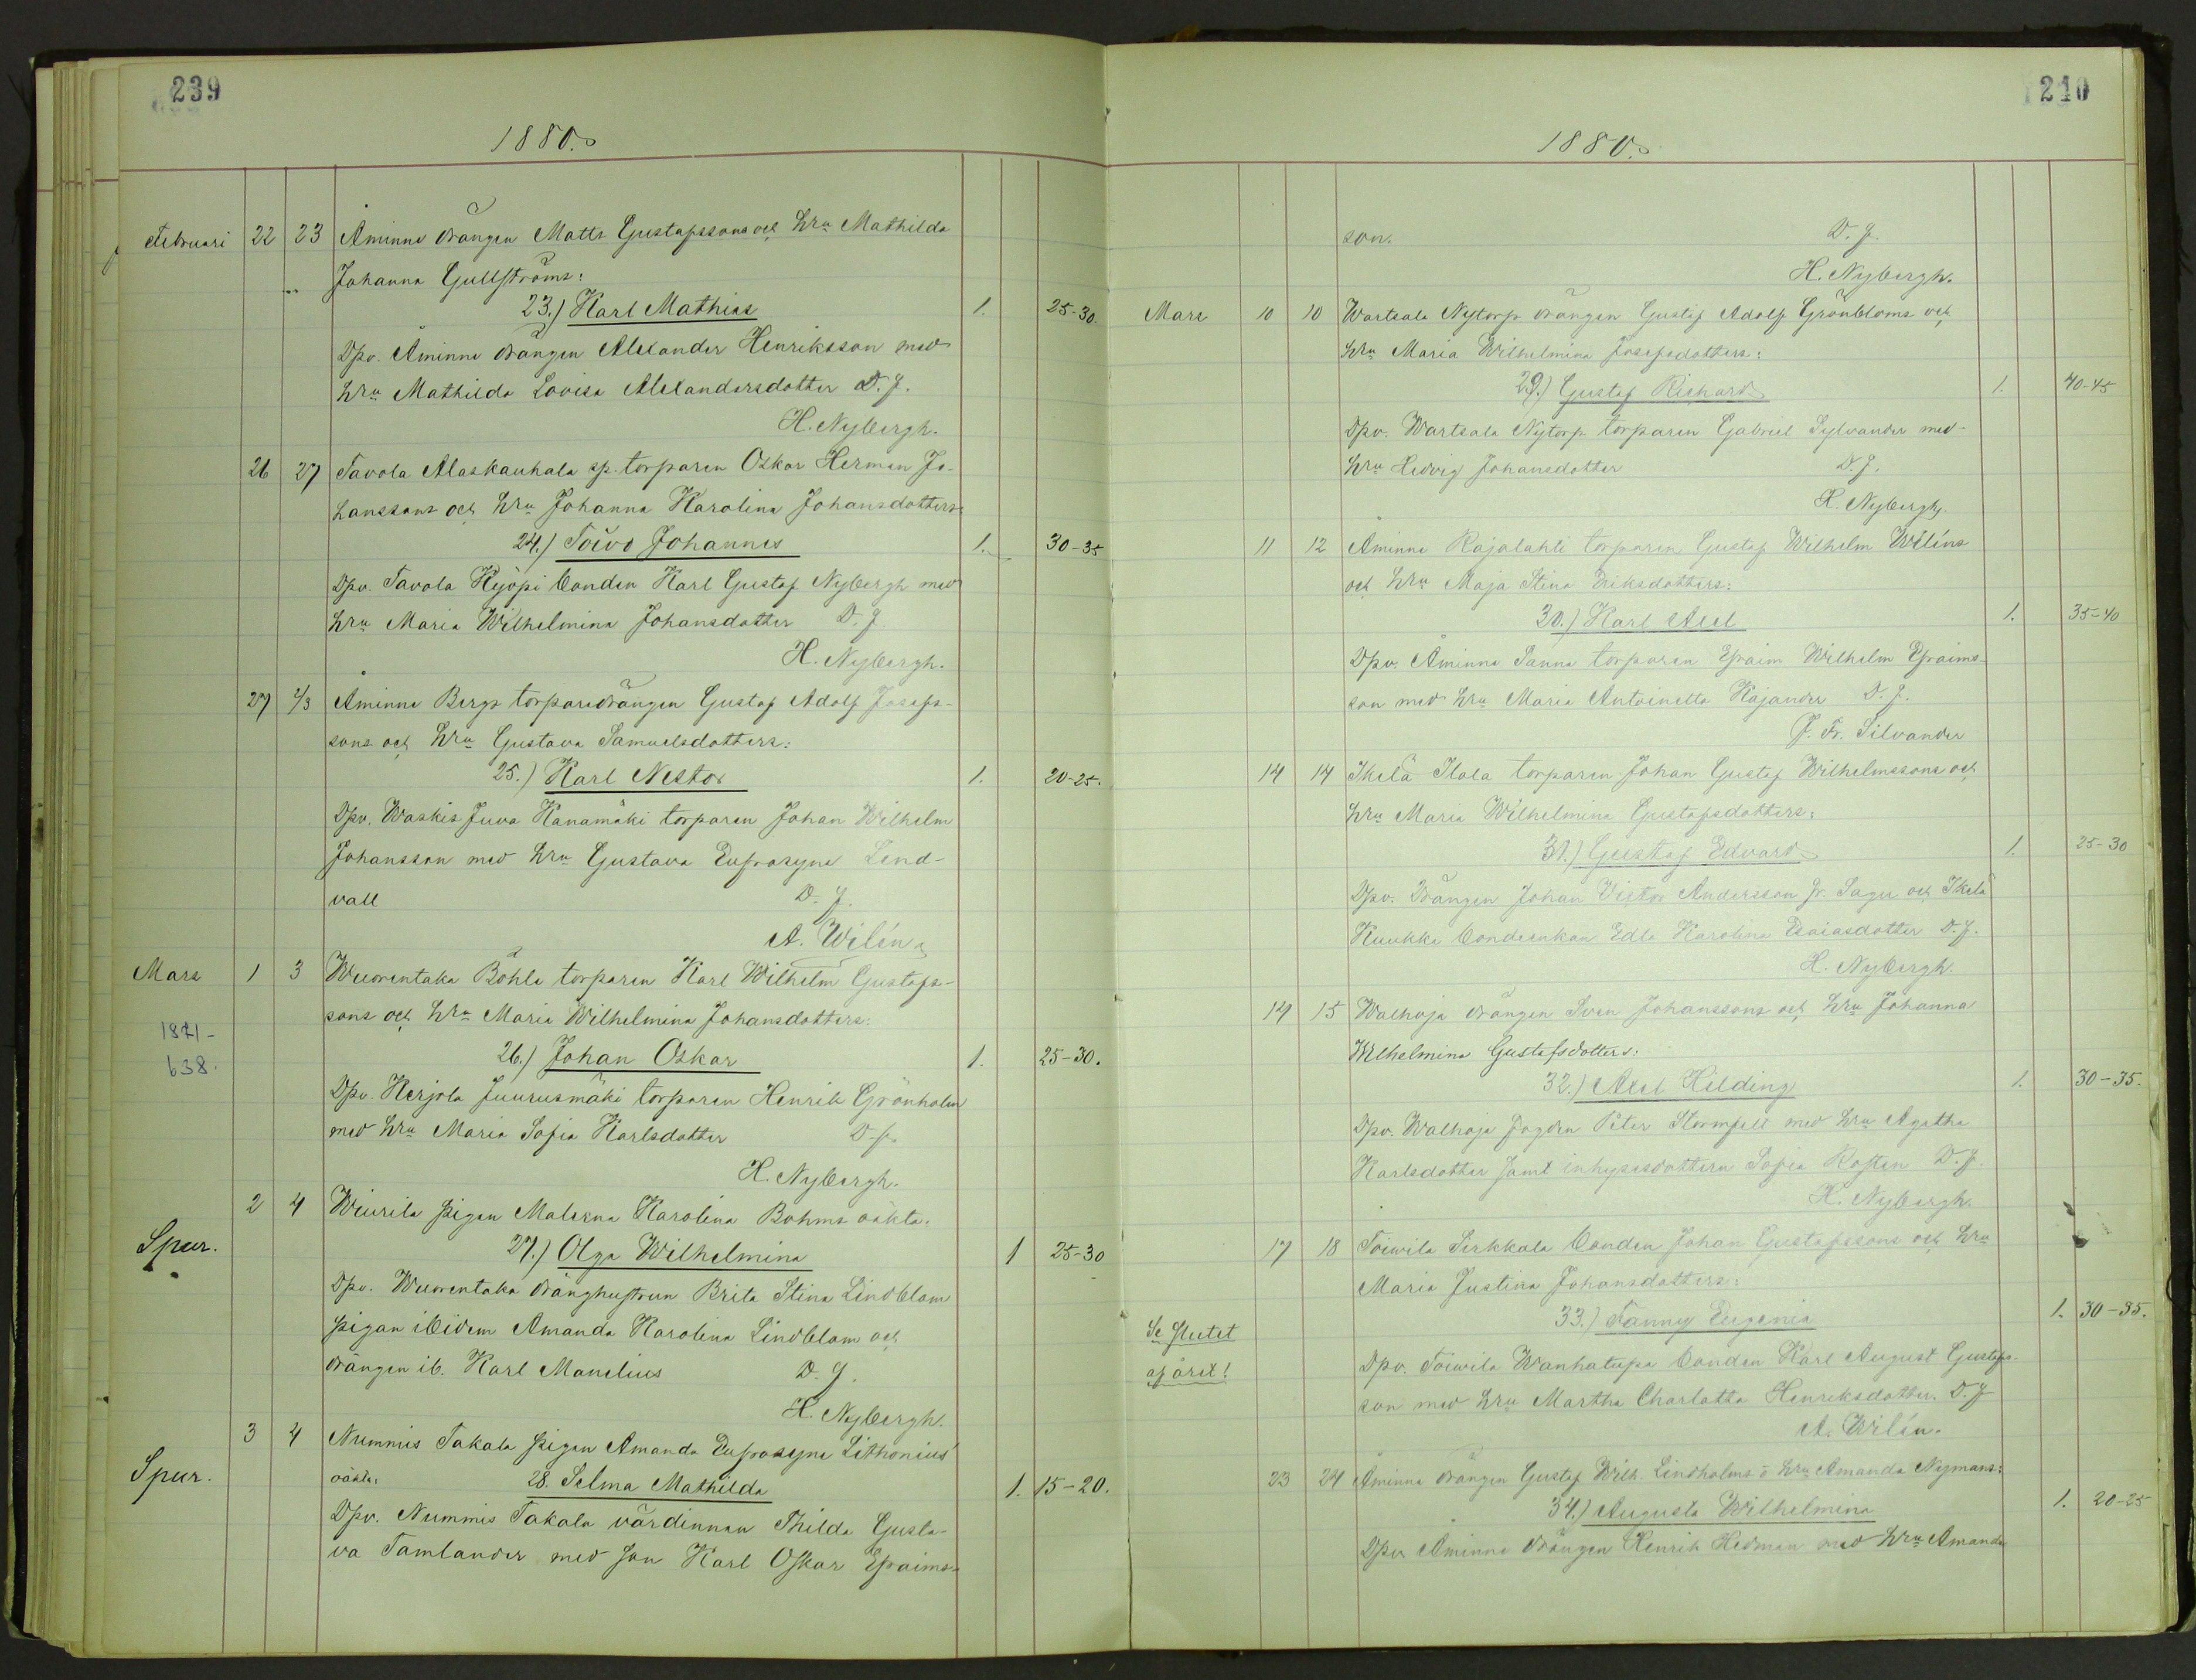 239
1880.
Februari 22 23 Åminne drängen Matts Gustafssons och hru Mathilda
Johanna Gullströms:
23.) Karl Mathias 1. 25-30.
Dpv. Åminne drängen Alexander Henriksson med
hru Mathilda Lovisa Alexandersdotter D. J.
H. Nybergh.
26 27 Tavola Alaskauhala sp. torparen Oskar Herman Jo-
hanssons och hru Johanna Karolina Johansdotters:
24.) Toivo Johannes 1. 30-35
Dpv. Tavola Kyöpi bonden Karl Gustaf Nybergh med
hru Maria Wilhelmina Johansdotter D. J.
H. Nybergh.
27 2/3 Åminne Bergs torparedrängen Gustaf Adolf Josefs-
sons och hru Gustava Samuelsdotters:
25.) Karl Nestor 1. 20-25.
Dpv. Waskis Juva Hanamäki torparen Johan Wilhelm
Johansson med hru Gustava Eufrosyne Lind-
vall D. J.
A. Wilén
Mars 1 3 Wuorentaka Böhle torparen Karl Wilhelm Gustafs-
sons och hru Maria Wilhelmina Johansdotters:
1871-
638.
26.) Johan Oskar 1. 25-30.
Dpv. Kerjola Juurusmäki torparen Henrik Grönholm
med hru Maria Sofia Karlsdotter D. J.
H. Nybergh.
2 4 Wiurila pigan Malena Karolina Bohms oäkta:
Spur. 27.) Olga Wilhelmina 1 25-30
Dpv. Wuorentaka dränghustrun Brita Stina Lindblom
pigan ibidem Amanda Karolina Lindblom och
drängen ib. Karl Manelius D. J.
H. Nybergh.
3 4 Nummis Takala pigan Amanda Eufrosyne Lithonius'
Spur. oäkta: 28. Selma Mathilda 1. 15-20.
Dpv. Nummis Takala värdinnan Thilda Gusta-
va Tamlander med son Karl Oskar Efraims-
240
1880.
son. D. J.
H. Nybergh.
Mars 10 10 Wartsala Nytorp drängen Gustaf Adolf Grönbloms och
hru Maria Wilhelmina Josefsdotters:
29.) Gustaf Richard 1. 40-45
Dpv. Wartsala Nytorp torparen Gabriel Sylvander med
hru Hedvig Johansdotter D. J.
H. Nybergh.
11 12 Åminne Rajalahti torparen Gustaf Wilhelm Wiléns
och hru Maja Stina Eriksdotters:
30.) Karl Axel 1. 35-40
Dpv. Åminne Sanna torparen Efraim Wilhelm Efraims-
son med hru Maria Antoinetta Kajander D. J.
F. Fr. Silvander
14 14 Ikelä Ilola torparen Johan Gustaf Wilhelmssons och
hru Maria Wilhelmina Gustafsdotters:
31.) Gustaf Edvard 1. 25-30
Dpv. Drängen Johan Victor Andersson fr. Sagu och Ikelä
Kuukka bondeenkan Edla Karolina Esaiasdotter D. J.
H. Nybergh.
14 15 Walhoja drängen Sven Johanssons och hru Johanna
Wilhelmina Gustafsdotters:
32.) Axel Hilding 1. 30-35.
Dpv. Walhoja fogden Peter Stormfelt med hru Agatha
Karlsdotter samt inhysesdottern Sofia Rosten D. J.
H. Nybergh.
17 18 Toiwila Pirkkala bonden Johan Gustafssons och hru
Maria Justina Johansdotters:
33.) Fanny Eugenia 1. 30-35.
Se slutet
af året!
Dpv. Toiwila Wanhatupa bonden Karl August Gustafs-
son med hru Martha Charlotta Henriksdotter. D. J
A. Wilén.
23 24 Åminne drängen Gustaf Wilh. Lindholms o hru Amanda Nymans:
34.) Augusta Wilhelmina 1. 20-25
Dpv. Åminne drängen Henrik Hedman med hru Amanda